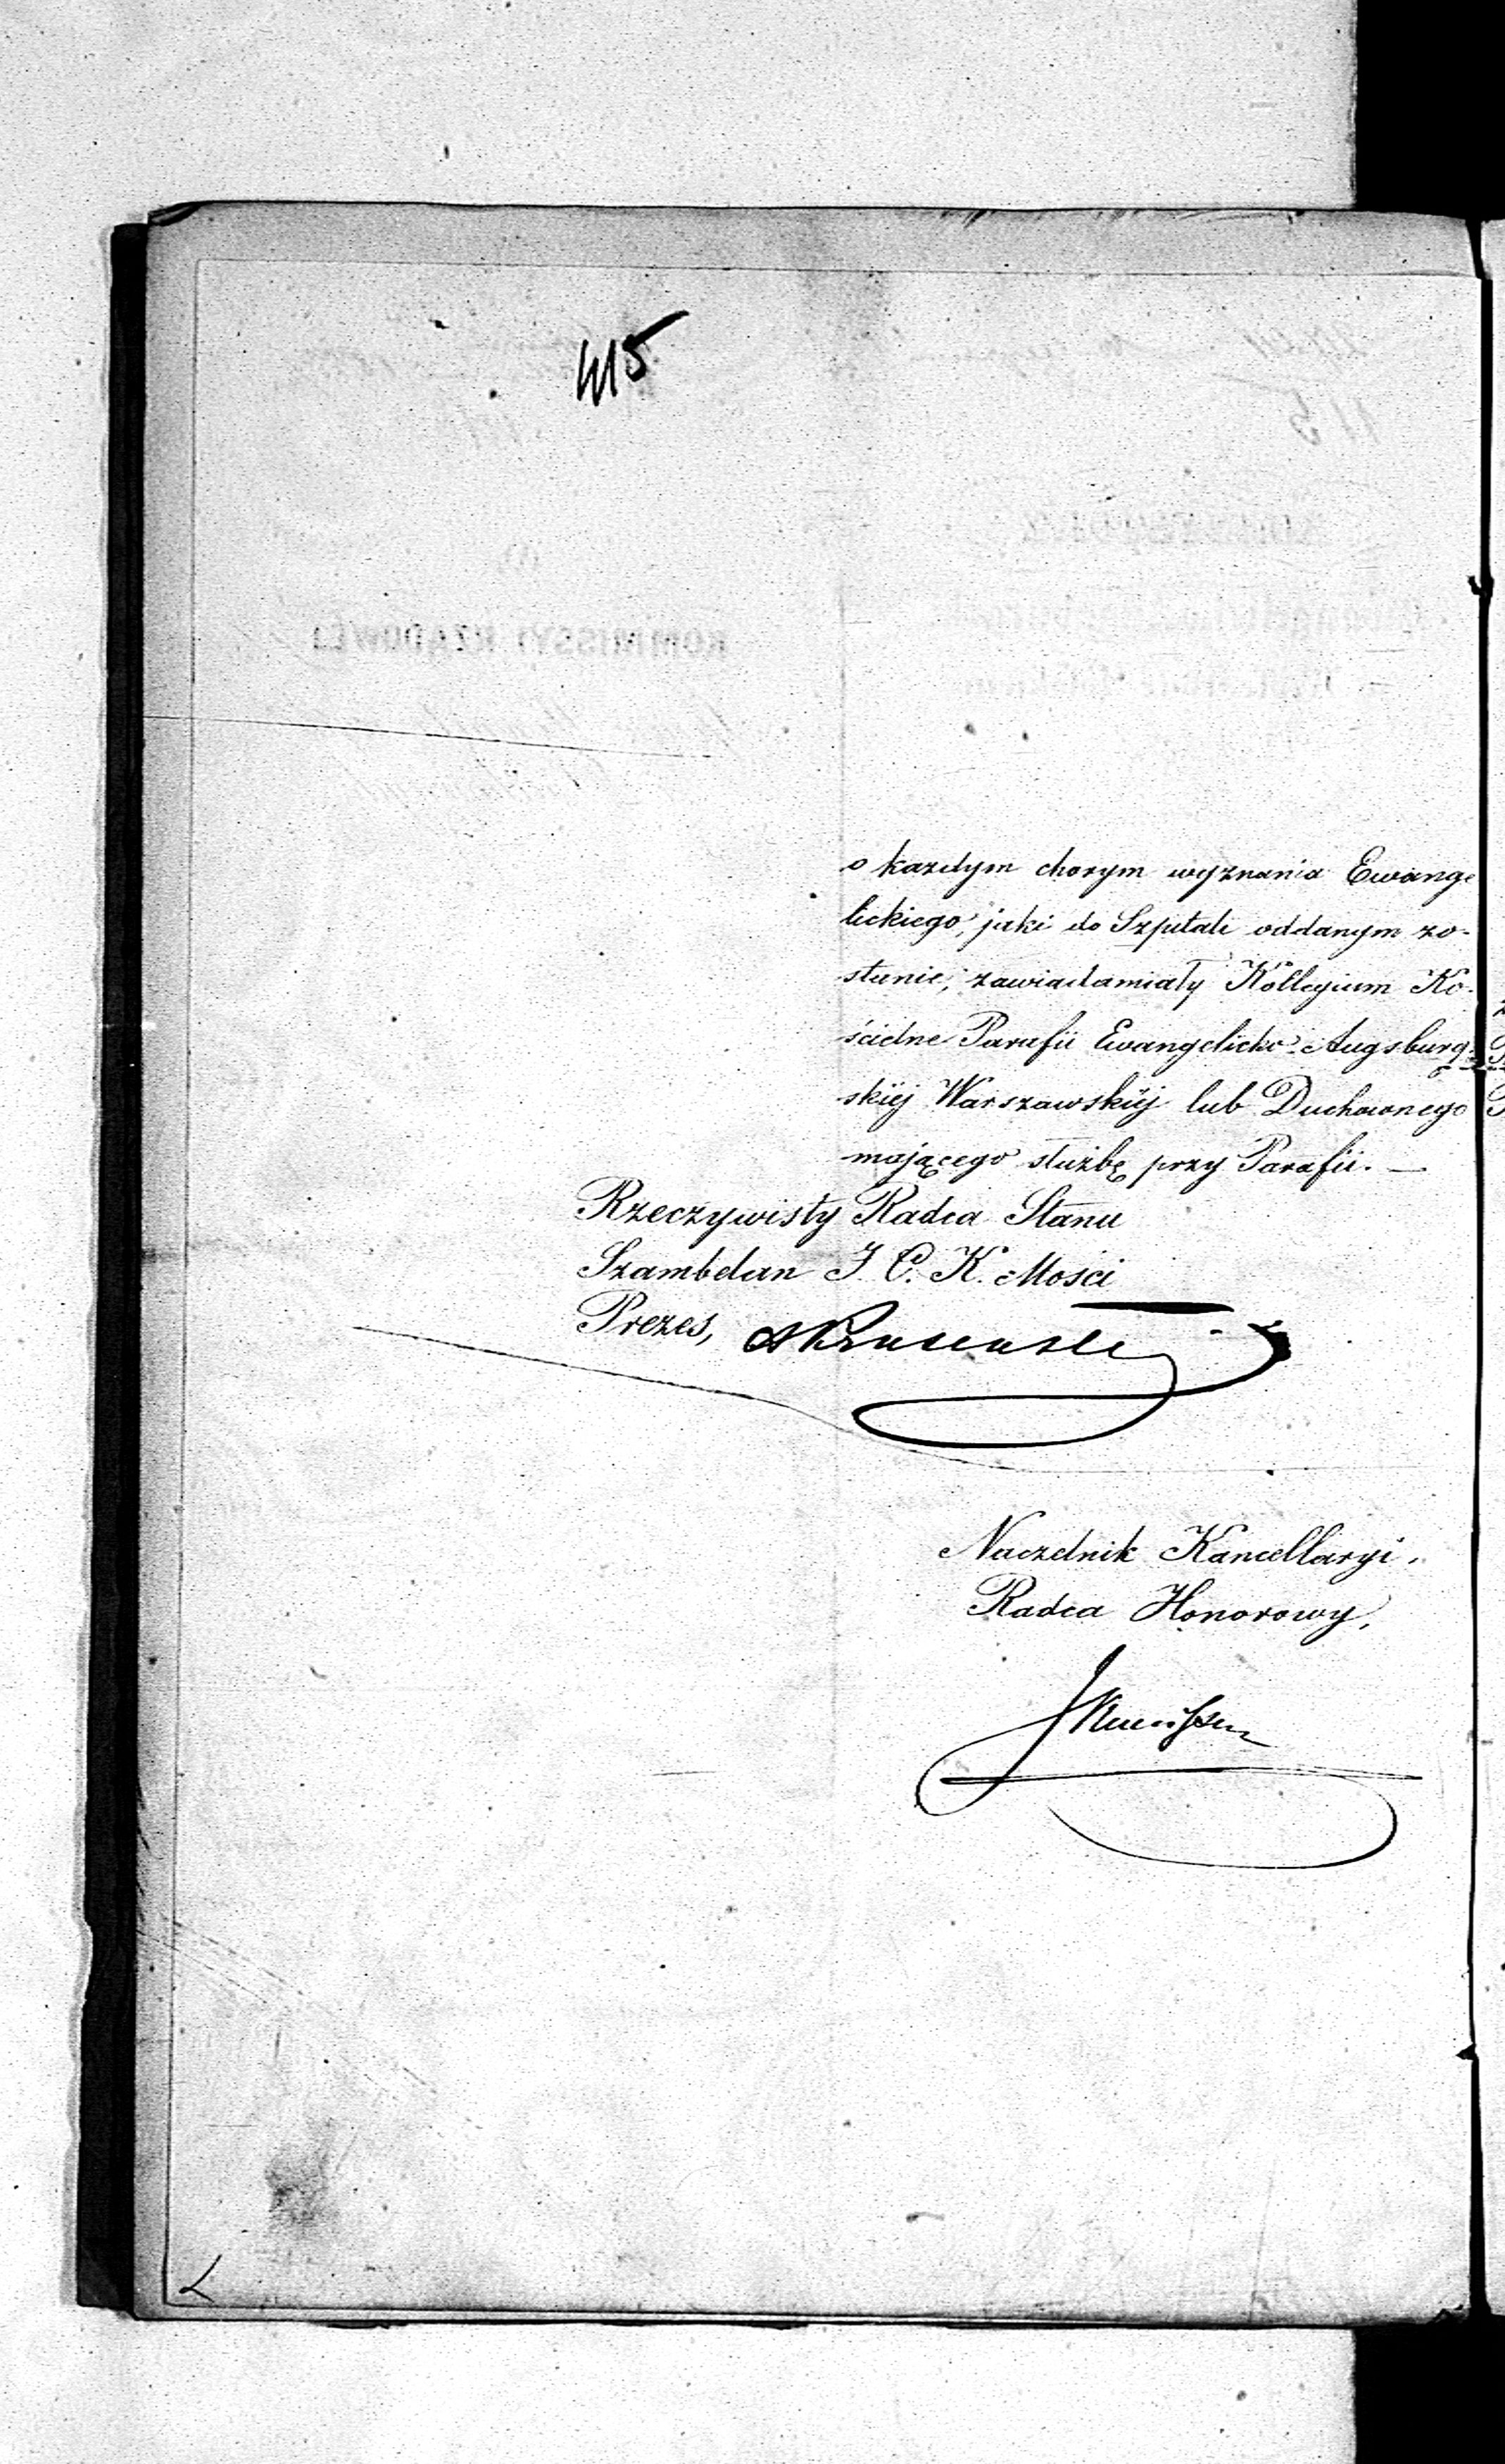 415
o każdym chorym wyznania Ewange
lickiego, jaki do Szpitali oddanym zo-
stanie, zawiadamiały Kollegium Ko-
ścielne Parafii Ewangelicko-Augsburg-
skiej Warszawskiej lub Duchownego
mającego służbę przy Parafii. —
Rzeczywisty Radca Stanu
Szambelan J. C. K. Mości
Prezes,
Naczelnik Kancellaryi,
Radca Honorowy,